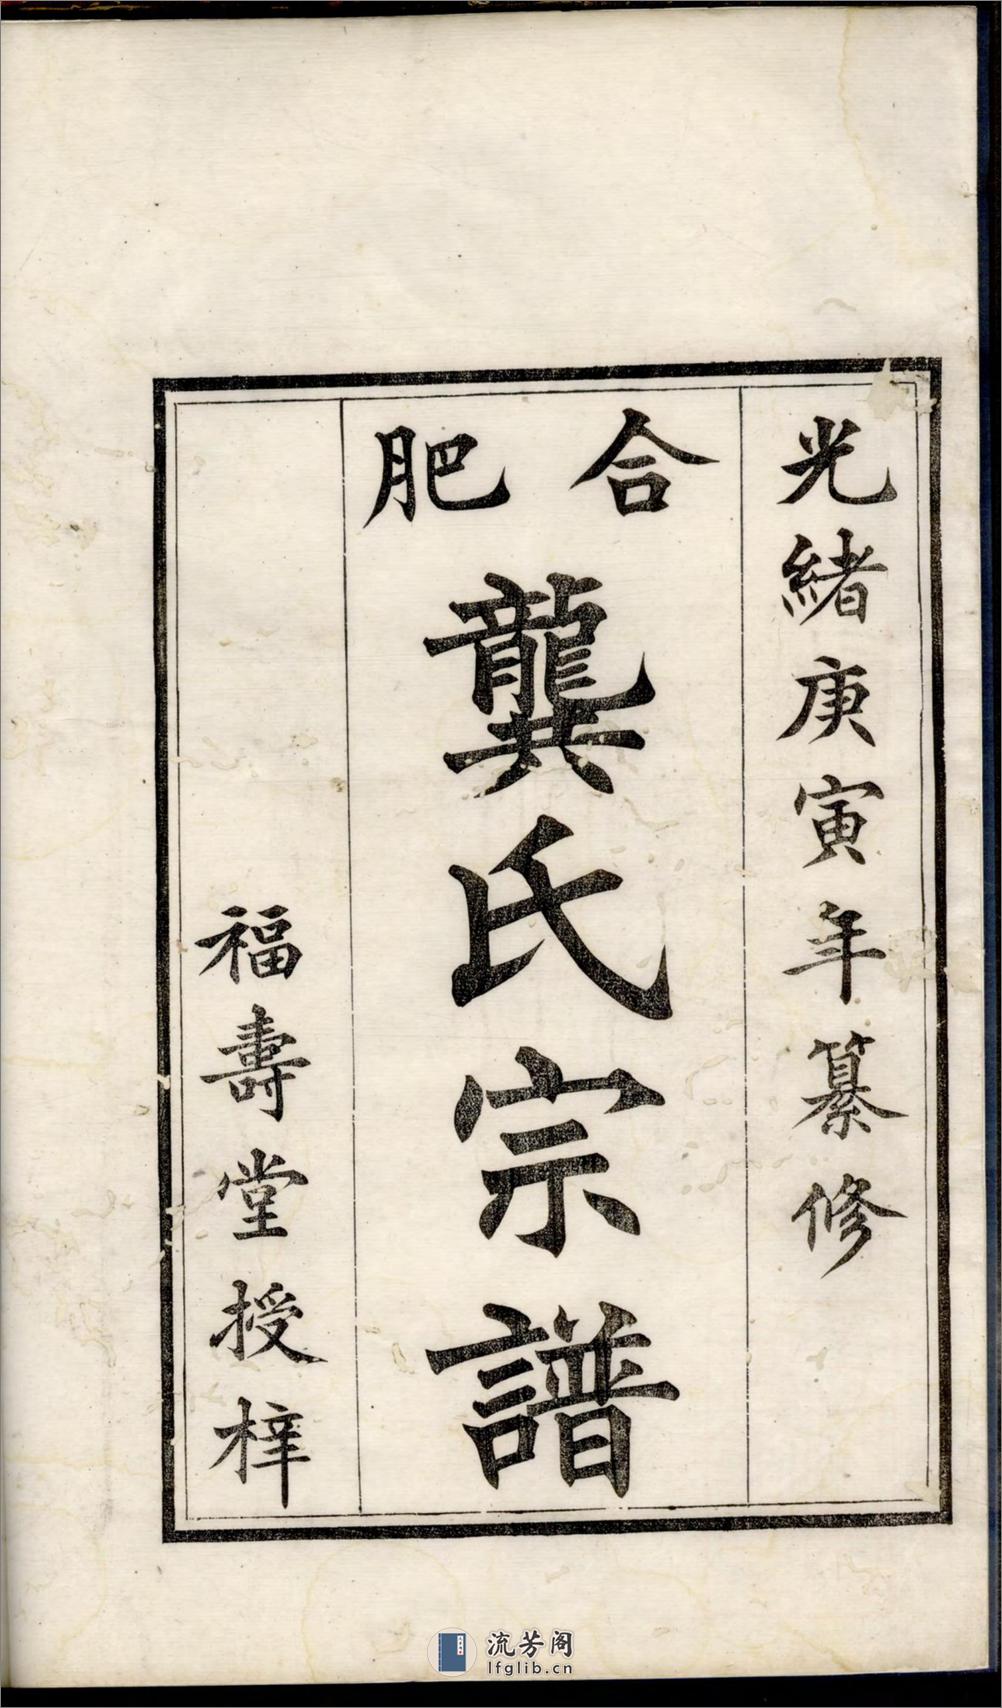 光緒庚寅年纂修
合肥
龔氏宗譜
福壽堂授梓
流芳阁
lfglib.cn